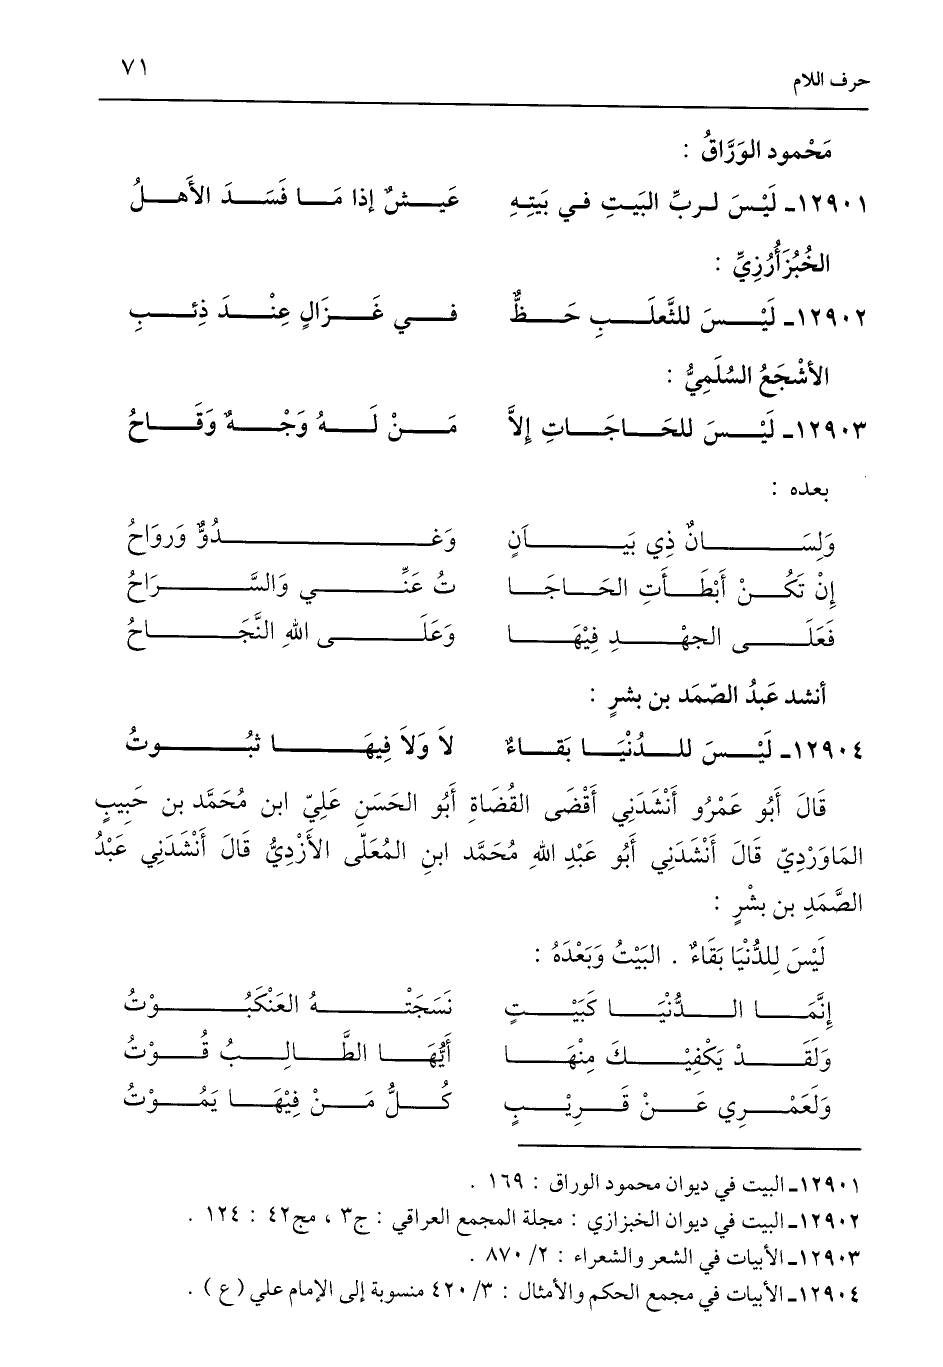 حرف اللام ٧١
مَحْمود الوَرَّاقُ :
١٢٩٠١ـ لَيْسَ لربِّ البَيتِ في بَيتِهِ عَيشٌ إذا مَا فَسَدَ الأَهلُ
الخُبْزَأَرُزِيِّ :
١٢٩٠٢ـ لَيْسَ للثَّعلَبِ حَظٌّ في غَزَالٍ عِنْدَ ذِئبِ
الأشْجَعُ السُلَمِيُّ :
١٢٩٠٣ـ لَيْسَ للحَاجَاتِ إلاَّ مَنْ لَهُ وَجْهٌ وَقَاحُ
بعده :
وَلِسَانٌ ذِي بَيَانٍ وَغدُوٌّ وَروَاحُ
إنْ تَكُنْ أَبْطَأَتِ الحَاجَا تُ عَنِّي وَالسَّرَاحُ
فَعَلَى الجهْدِ فِيْهَا وَعَلَى اللهِ النَّجَاحُ
أنشد عَبدُ الصّمَد بن بشرٍ :
١٢٩٠٤ـ لَيْسَ للدُنْيَا بَقاءٌ لاَ وَلاَ فِيهَا ثبُوتُ
قَالَ أَبُو عَمْرُو أَنْشَدَنِي أَقْضَى القُضَاةِ أَبُو الحَسَنِ عَلِيّ ابن مُحَمَّد بن حَبِيبٍ
المَاوَرْدِيّ قَالَ أَنْشَدَنِي أَبُو عَبْدِ اللهِ مُحَمَّد ابنِ المُعَلّى الأَزْدِيُّ قَالَ أَنْشَدَنِي عَبْدُ
الصَّمَدِ بن بشْرٍ :
لَيْسَ لِلدُّنْيَا بَقَاءٌ . البَيْتُ وَبَعْدَهُ :
إنَّمَا الدُّنْيَا كَبَيْتٍ نَسَجَتْهُ العَنْكَبُوْتُ
وَلَقَدْ يَكْفِيْكَ مِنْهَا أَيُّهَا الطَّالِبُ قُوْتُ
وَلَعَمْرِي عَنْ قَرِيْبٍ كُلُّ مَنْ فِيْهَا يَمُوْتُ
١٢٩٠١ـ البيت في ديوان محمود الوراق : ١٦٩ .
١٢٩٠٢ـ البيت في ديوان الخبزازي : مجلة المجمع العراقي : ج٣ ، مج٤٢ : ١٢٤ .
١٢٩٠٣ـ الأبيات في الشعر والشعراء : ٢/ ٨٧٠ .
١٢٩٠٤ـ الأبيات في مجمع الحكم والأمثال : ٣/ ٤٢٠ منسوبة إلى الإمام علي (ع) .